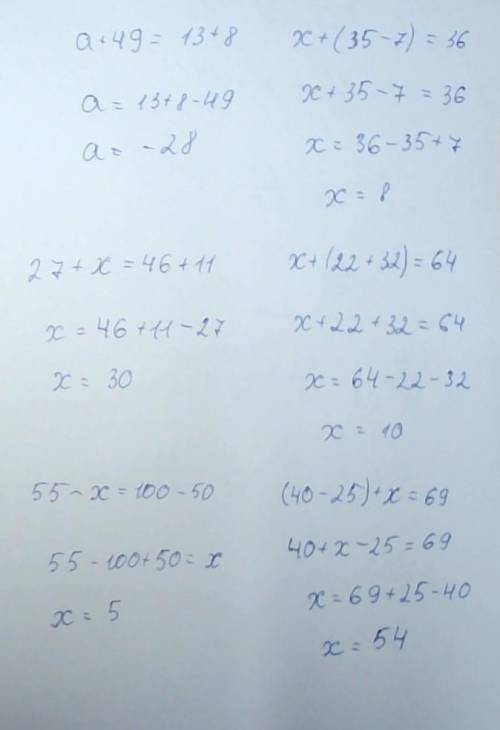 a+49 = 13+8
a = 13+8-49
a = -28
x+(35-7) = 36
x+35-7 = 36
x = 36-35+7
x = 8
27+x = 46+11
x = 46+11-27
x = 30
x+(22+32) = 64
x+22+32 = 64
x = 64-22-32
x = 10
55-x = 100-50
55-100+50 = x
x = 5
(40-25)+x = 69
40+x-25 = 69
x = 69+25-40
x = 54